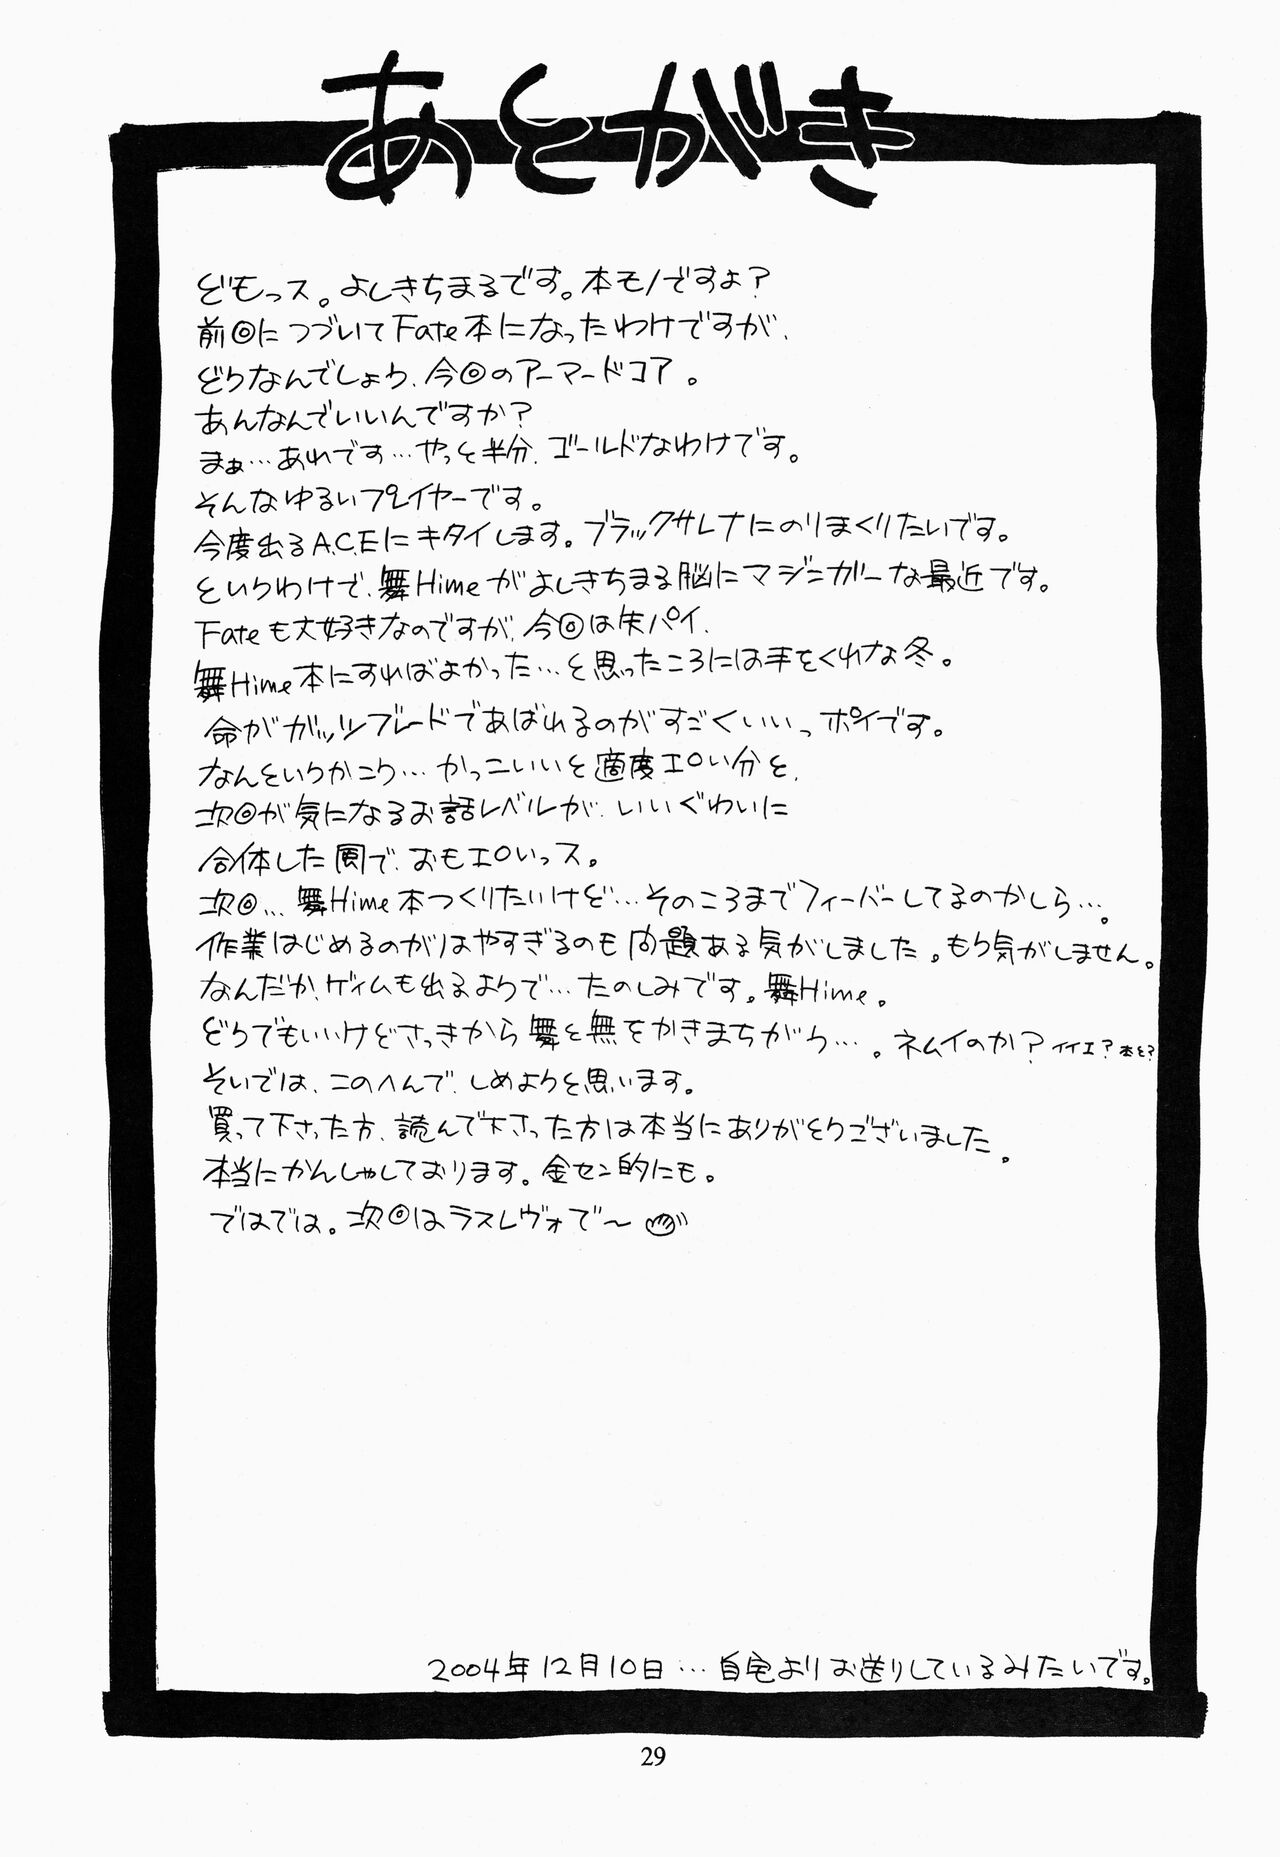 あとがき
どもっス。よしきちまるです。本モノですょ?
前回につづいてFate本になったわけですが、
どうなんでしょう、今回のアーマードコア。
あんなんでいいんですか?
まぁ…あれです…やっと半分、ゴールドなわけです。
そんなゆるいプレイヤーです。
今度出るA.C.Eにキタイします。ブラックサレナにのりまくりたいです。
というわけで、舞Himeがよしきちまる脳にマジニガーな最近です。
Fateも大好きなのですが、今回は失パイ、
舞Hime本にすればよかった…と思ったころには手をくれな冬。
命がガッツブレードであばれるのがすごくいいっポイです。
なんというかこう…かっこいいと適度エロい分と、
次回が気になるお話レベルが、いいぐわいに
合体した図で、おもエロいっス。
次回…舞Hime本つくりたいけど…そのころまでフィーバーしてるのかしら…。
作業はじめるのがはやすぎるのも問題ある気がしました。もう気がしません。
なんだか、ゲィムも出るようで…たのしみです。舞Hime。
どうでもいいけどさっきから舞と無をかきまちがう…。ネムイのか?イイエ?本と?
そいでは、このへんで、しめようと思います。
買って下さった方、読んで下さった方は本当にありがとうございました。
本当にかんしゃしております。金セン的にも。
ではでは。次回はラスレヴォで〜
2004年12月10日…自宅よりお送りしているみたいです。
29